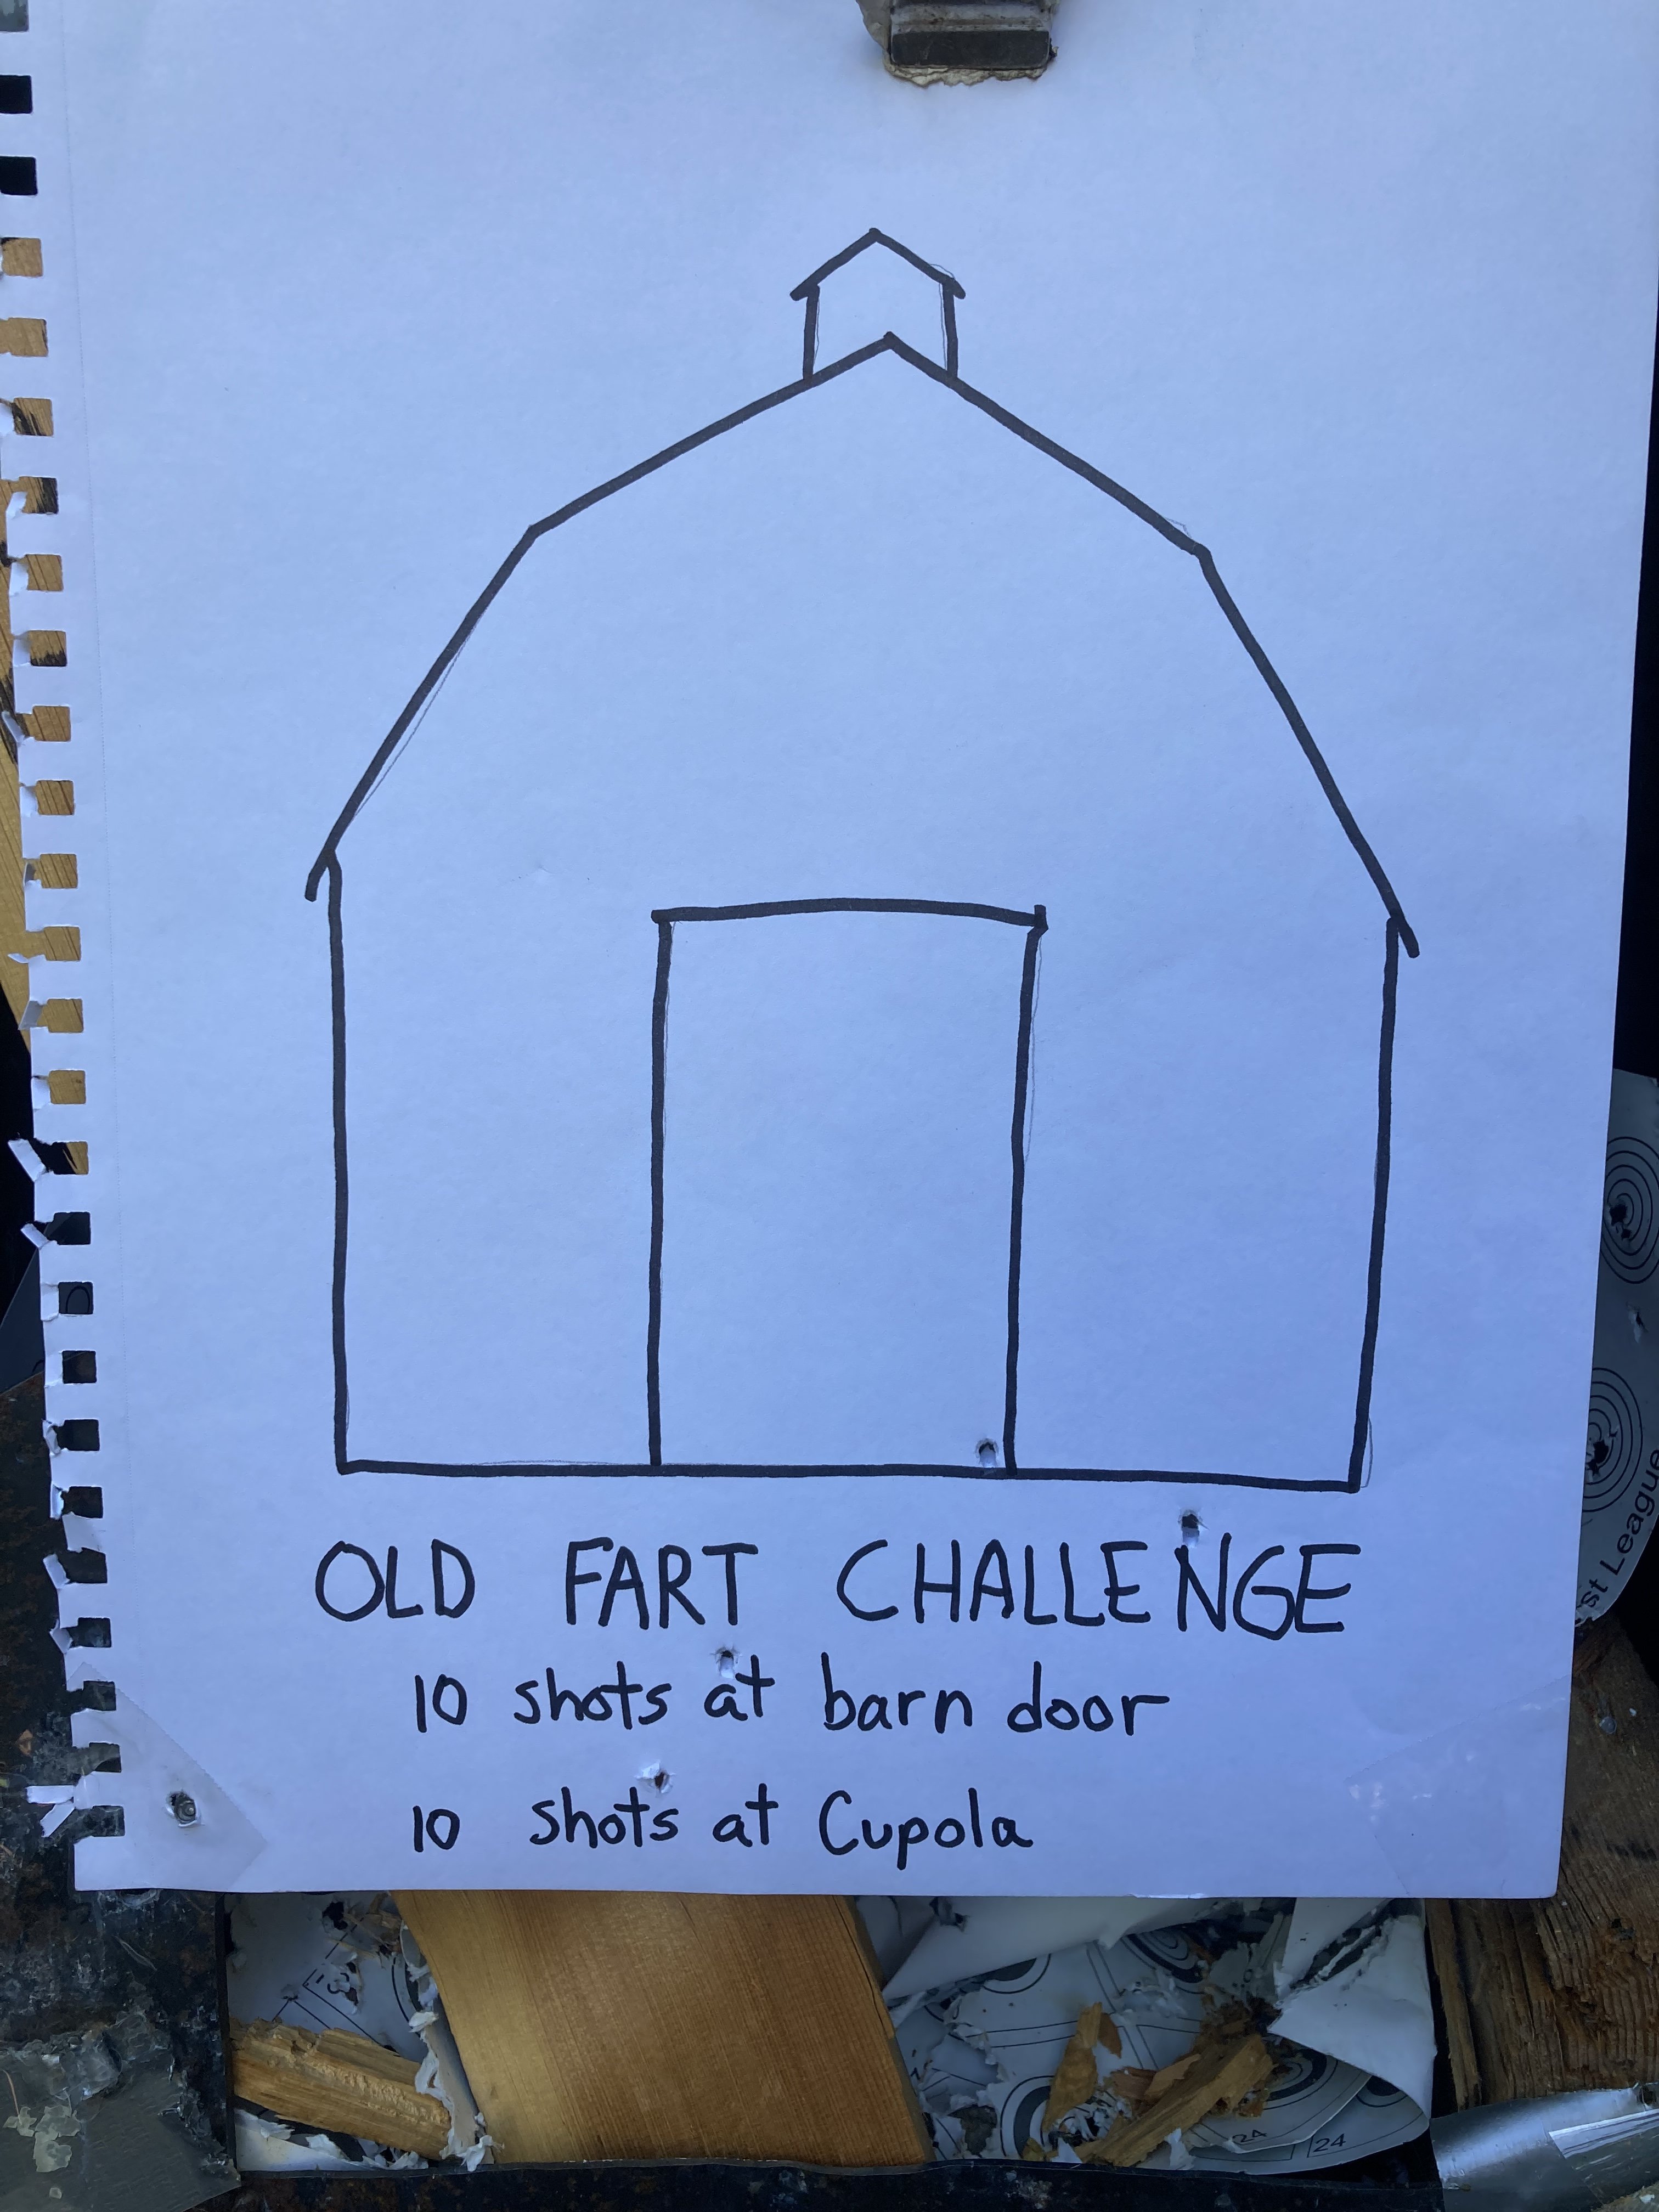 OLD FART CHALLENGE
10 shots at barn door
10 shots at Cupola
st League
24
24